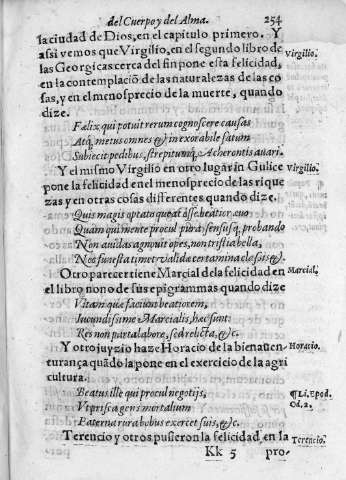 del Cuerpo y del Alma. 254
la ciudad de Dios, en el capitulo primero. Y
assi vemos que Virgilio, en el segundo libro de
Virgilio.
las Georgicas cerca del fin pone esta felicidad,
en la contemplaciõ de las naturalezas de las co
sas, y en el menosprecio de la muerte, quando
dize.
Fælix qui potuit rerum cognoscere causas
Atq; metus omnes & inexorabile fatum
Subiecit pedibus, strepitumq; Acherontis auari.
Y el mismo Virgilio en otro lugar in Gulice
Virgilio.
pone la felicidad en el menosprecio de las rique
zas y en otras cosas differentes quando dize.
Quis magis optato queat esse beatior æuo
Quam qui mente procul pura; sensusq; probando
Non auidas agnouit opes, non tristia bella,
Nec funesta timet valida certamina classis &.
Otro parecer tiene Marcial de la felicidad en
Marcial.
el libro nono de sus epigrammas quando dize
Vitam quæ faciunt beatiorem,
Iucundissime Marcialis, hæc sunt:
Res non parta labore, sed relicta, &c.
Y otro juyzio haze Horacio de la bienauen-
Horacio.
turança quãdo la pone en el exercicio de la agri
cultura.
Beatus ille qui procul negotijs,
¶ Li. Epod.
Od. 2.
Vt prisca gens mortalium
Paterna rura bobus exercet suis, &c.
Terencio y otros pusieron la felicidad en la
Terencio.
Kk 5 pro-